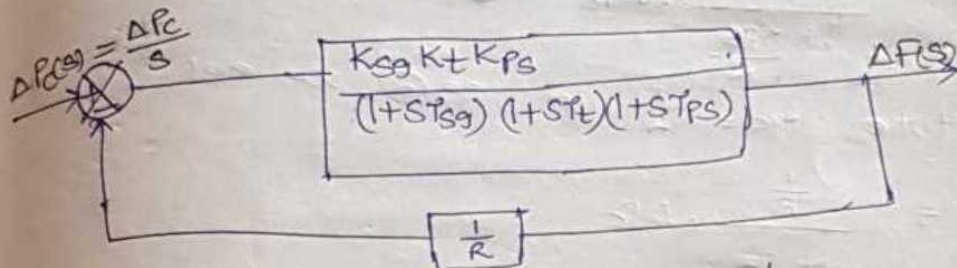 ΔPc(s) = ΔPc/s
Ksg Kt Kps
(1+STsg) (1+STt)(1+STps)
ΔF(s)
1/R